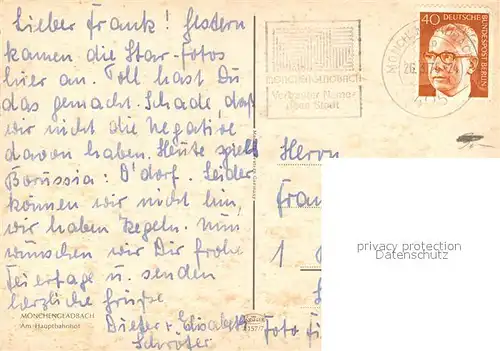 Lieber Frank! Gestern
kamen die Star-Fotos
hier an. Toll hast Du
das gemacht. Schade, daß
wir nicht die Negative
davon haben. Heute spielt
Borussia : D'dorf. Leider
können wir nicht hin,
wir haben Kegeln. Nun
wünschen wir Dir frohe
Feiertage u. senden
herzliche Grüße
Dieter + Elisabeth
Schröter
MÖNCHENGLADBACH
Am Hauptbahnhof
MÖNCHENGLADBACH
Stadt
40
DEUTSCHE
BUNDESPOST BERLIN
Herrn
Fran
1
Foto
privacy protection
Datenschutz